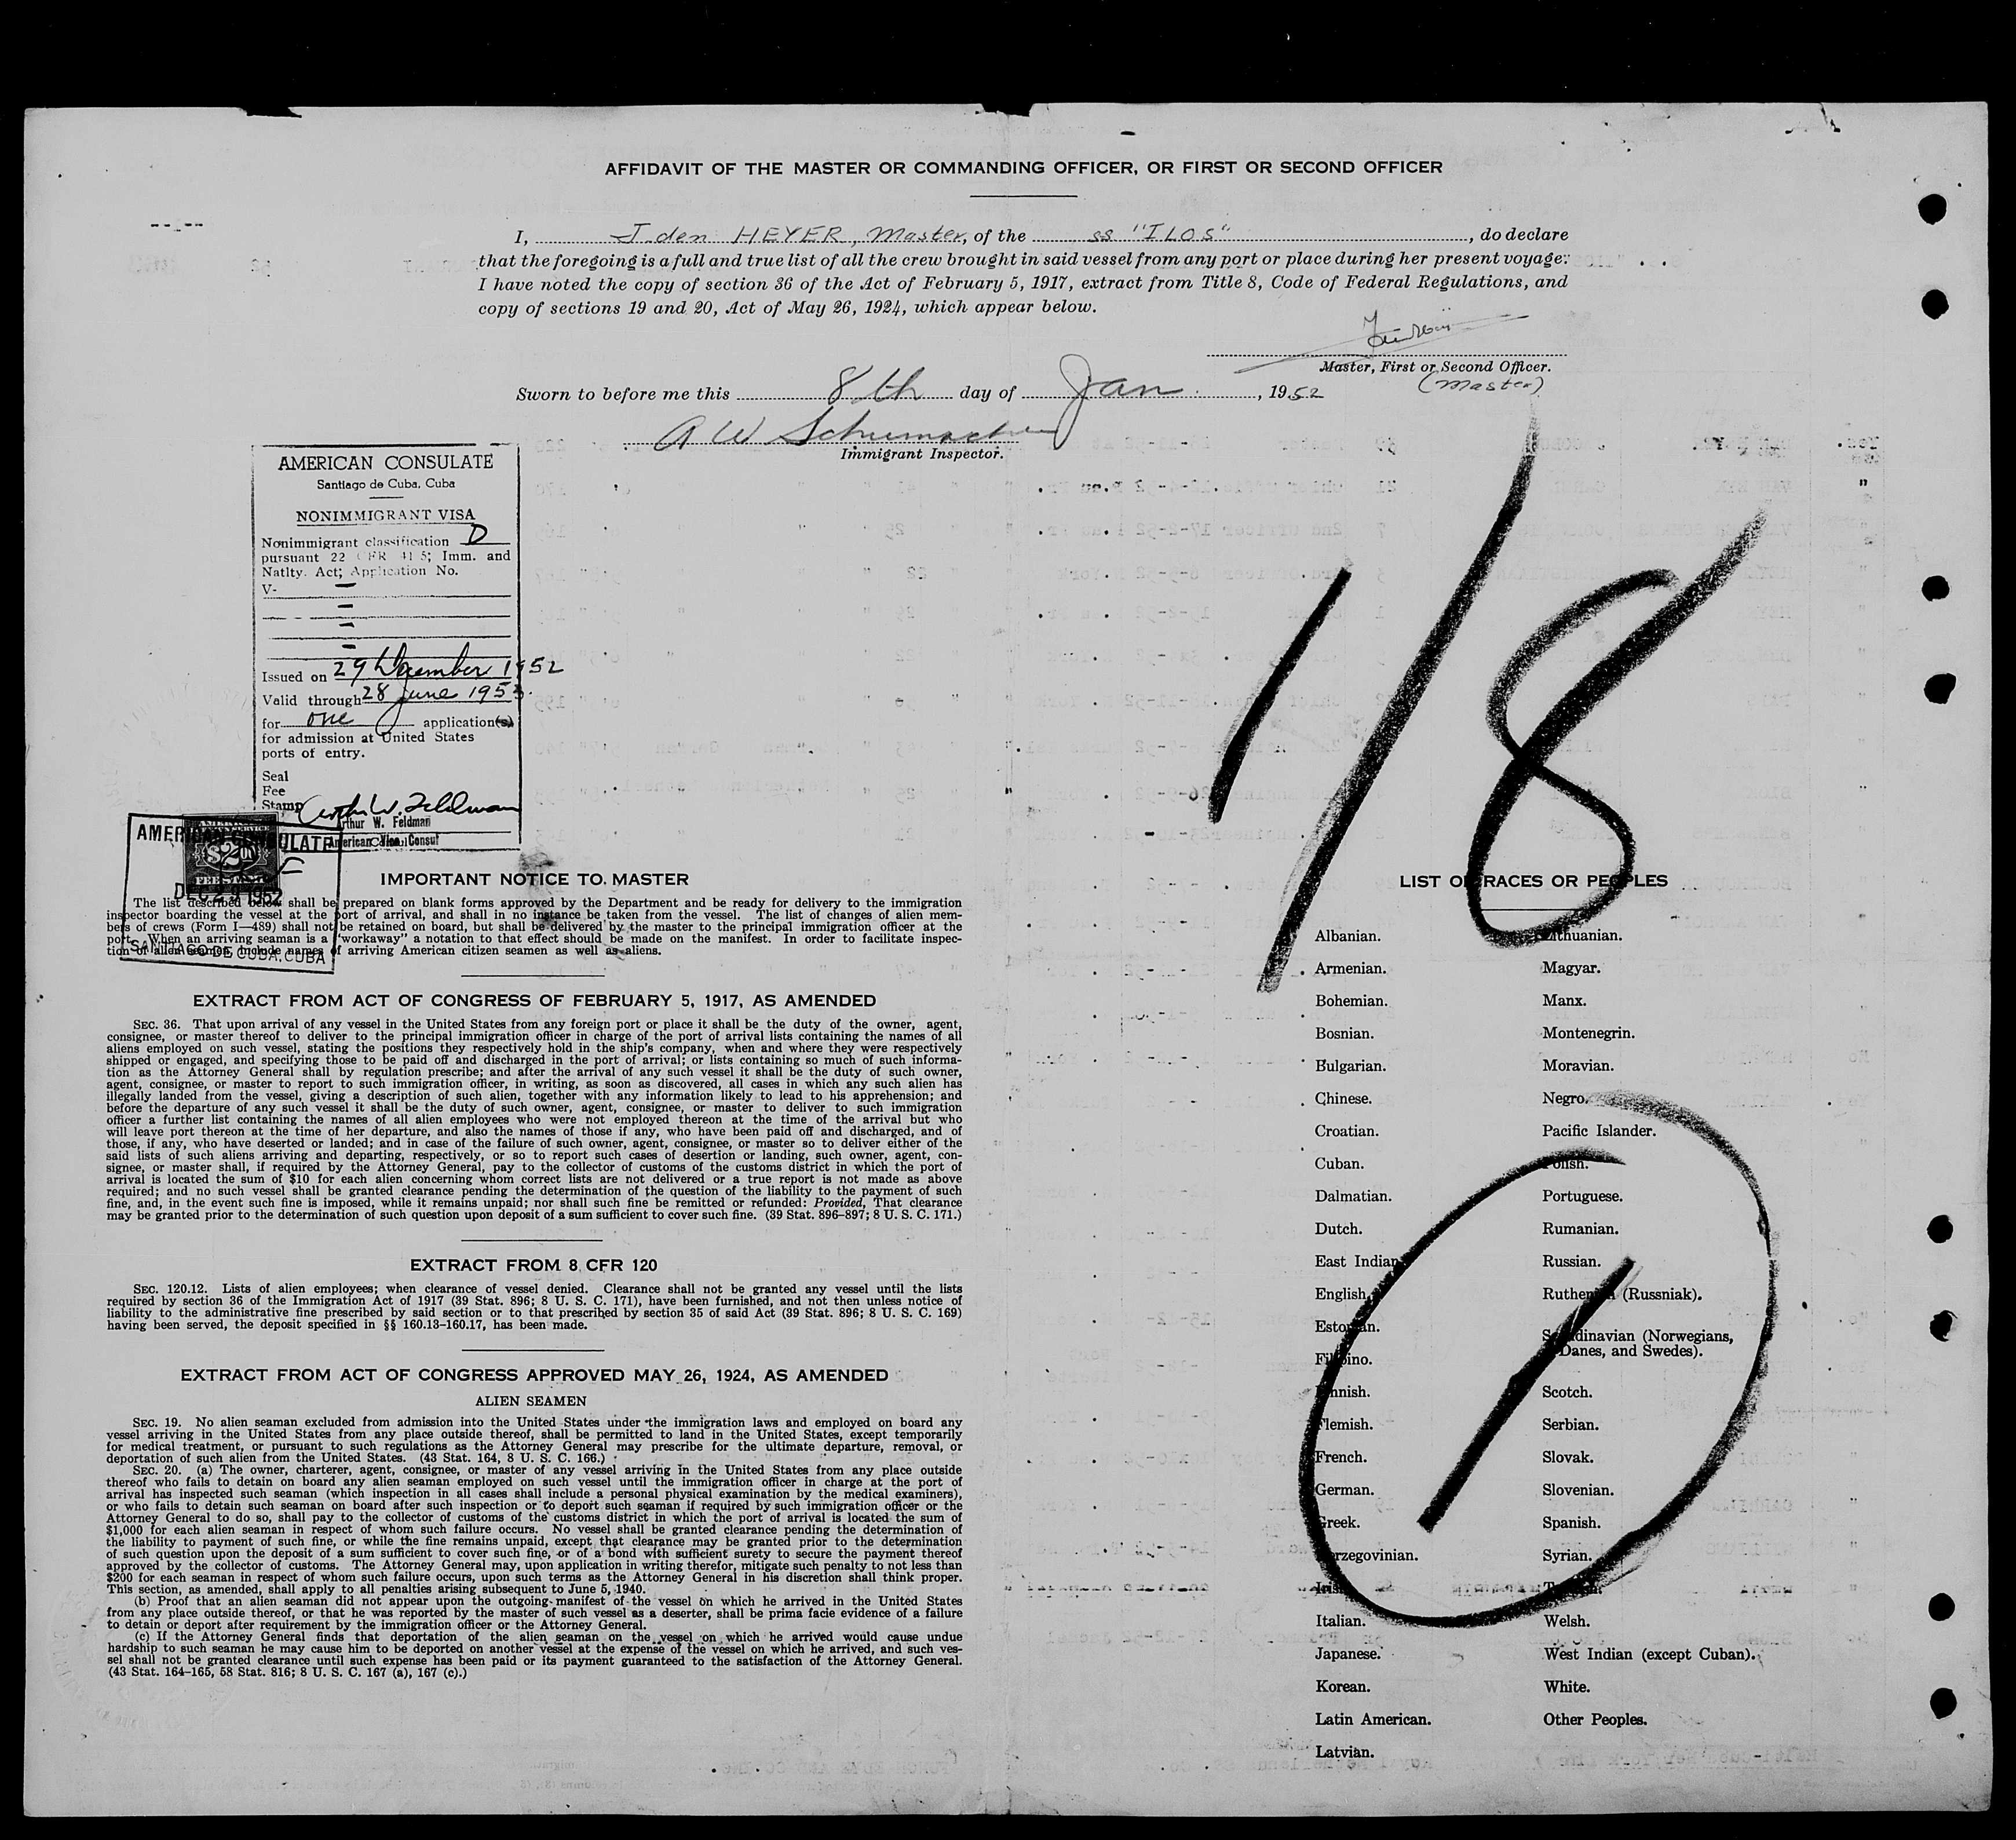 AFFIDAVIT OF THE MASTER OR COMMANDING OFFICER, OR FIRST OR SECOND OFFICER
I, J. den HEYER, Master, of the ss "ILOS", do declare
that the foregoing is a full and true list of all the crew brought in said vessel from any port or place during her present voyage.
I have noted the copy of section 36 of the Act of February 5, 1917, extract from Title 8, Code of Federal Regulations, and
copy of sections 19 and 20, Act of May 26, 1924, which appear below.
Master, First or Second Officer.
(Master)
Sworn to before me this 8th day of Jan., 1952
A W Schumacher
Immigrant Inspector.
AMERICAN CONSULATE
Santiago de Cuba, Cuba
NONIMMIGRANT VISA
Nonimmigrant classification D
pursuant 22 CFR 41.5; Imm. and
Natlty. Act; Application No.
V-
Issued on 29 December 1952
Valid through 28 June 1953.
for one application(s)
for admission at United States
ports of entry.
Seal
Fee
Stamp
Arthur W. Feldman
Arthur W. Feldman
American Vice Consul
AMERICAN CONSULATE
$2
FEE STAMP
DEC 29 1952
SANTIAGO DE CUBA, CUBA
1/8
IMPORTANT NOTICE TO MASTER
The list described below shall be prepared on blank forms approved by the Department and be ready for delivery to the immigration
inspector boarding the vessel at the port of arrival, and shall in no instance be taken from the vessel. The list of changes of alien mem-
bers of crews (Form I—489) shall not be retained on board, but shall be delivered by the master to the principal immigration officer at the
port. When an arriving seaman is a "workaway" a notation to that effect should be made on the manifest. In order to facilitate inspec-
tion of alien seamen, include names of arriving American citizen seamen as well as aliens.
EXTRACT FROM ACT OF CONGRESS OF FEBRUARY 5, 1917, AS AMENDED
SEC. 36. That upon arrival of any vessel in the United States from any foreign port or place it shall be the duty of the owner, agent,
consignee, or master thereof to deliver to the principal immigration officer in charge of the port of arrival lists containing the names of all
aliens employed on such vessel, stating the positions they respectively hold in the ship's company, when and where they were respectively
shipped or engaged, and specifying those to be paid off and discharged in the port of arrival; or lists containing so much of such informa-
tion as the Attorney General shall by regulation prescribe; and after the arrival of any such vessel it shall be the duty of such owner,
agent, consignee, or master to report to such immigration officer, in writing, as soon as discovered, all cases in which any such alien has
illegally landed from the vessel, giving a description of such alien, together with any information likely to lead to his apprehension; and
before the departure of any such vessel it shall be the duty of such owner, agent, consignee, or master to deliver to such immigration
officer a further list containing the names of all alien employees who were not employed thereon at the time of the arrival but who
will leave port thereon at the time of her departure, and also the names of those if any, who have been paid off and discharged, and of
those, if any, who have deserted or landed; and in case of the failure of such owner, agent, consignee, or master so to deliver either of the
said lists of such aliens arriving and departing, respectively, or so to report such cases of desertion or landing, such owner, agent, con-
signee, or master shall, if required by the Attorney General, pay to the collector of customs of the customs district in which the port of
arrival is located the sum of $10 for each alien concerning whom correct lists are not delivered or a true report is not made as above
required; and no such vessel shall be granted clearance pending the determination of the question of the liability to the payment of such
fine, and, in the event such fine is imposed, while it remains unpaid; nor shall such fine be remitted or refunded: Provided, That clearance
may be granted prior to the determination of such question upon deposit of a sum sufficient to cover such fine. (39 Stat. 896–897; 8 U. S. C. 171.)
EXTRACT FROM 8 CFR 120
SEC. 120.12. Lists of alien employees; when clearance of vessel denied. Clearance shall not be granted any vessel until the lists
required by section 36 of the Immigration Act of 1917 (39 Stat. 896; 8 U. S. C. 171), have been furnished, and not then unless notice of
liability to the administrative fine prescribed by said section or to that prescribed by section 35 of said Act (39 Stat. 896; 8 U. S. C. 169)
having been served, the deposit specified in §§ 160.13–160.17, has been made.
EXTRACT FROM ACT OF CONGRESS APPROVED MAY 26, 1924, AS AMENDED
ALIEN SEAMEN
SEC. 19. No alien seaman excluded from admission into the United States under the immigration laws and employed on board any
vessel arriving in the United States from any place outside thereof, shall be permitted to land in the United States, except temporarily
for medical treatment, or pursuant to such regulations as the Attorney General may prescribe for the ultimate departure, removal, or
deportation of such alien from the United States. (43 Stat. 164, 8 U. S. C. 166.)
SEC. 20. (a) The owner, charterer, agent, consignee, or master of any vessel arriving in the United States from any place outside
thereof who fails to detain on board any alien seaman employed on such vessel until the immigration officer in charge at the port of
arrival has inspected such seaman (which inspection in all cases shall include a personal physical examination by the medical examiners),
or who fails to detain such seaman on board after such inspection or to deport such seaman if required by such immigration officer or the
Attorney General to do so, shall pay to the collector of customs of the customs district in which the port of arrival is located the sum of
$1,000 for each alien seaman in respect of whom such failure occurs. No vessel shall be granted clearance pending the determination of
the liability to payment of such fine, or while the fine remains unpaid, except that clearance may be granted prior to the determination
of such question upon the deposit of a sum sufficient to cover such fine, or of a bond with sufficient surety to secure the payment thereof
approved by the collector of customs. The Attorney General may, upon application in writing therefor, mitigate such penalty to not less than
$200 for each seaman in respect of whom such failure occurs, upon such terms as the Attorney General in his discretion shall think proper.
This section, as amended, shall apply to all penalties arising subsequent to June 5, 1940.
(b) Proof that an alien seaman did not appear upon the outgoing manifest of the vessel on which he arrived in the United States
from any place outside thereof, or that he was reported by the master of such vessel as a deserter, shall be prima facie evidence of a failure
to detain or deport after requirement by the immigration officer or the Attorney General.
(c) If the Attorney General finds that deportation of the alien seaman on the vessel on which he arrived would cause undue
hardship to such seaman he may cause him to be deported on another vessel at the expense of the vessel on which he arrived, and such ves-
sel shall not be granted clearance until such expense has been paid or its payment guaranteed to the satisfaction of the Attorney General.
(43 Stat. 164–165, 58 Stat. 816; 8 U. S. C. 167 (a), 167 (c).)
LIST OF RACES OR PEOPLES
Albanian.
Armenian.
Bohemian.
Bosnian.
Bulgarian.
Chinese.
Croatian.
Cuban.
Dalmatian.
Dutch.
East Indian.
English.
Estonian.
Filipino.
Finnish.
Flemish.
French.
German.
Greek.
Herzegovinian.
Irish.
Italian.
Japanese.
Korean.
Latin American.
Latvian.
Lithuanian.
Magyar.
Manx.
Montenegrin.
Moravian.
Negro.
Pacific Islander.
Polish.
Portuguese.
Rumanian.
Russian.
Ruthenian (Russniak).
Scandinavian (Norwegians,
Danes, and Swedes).
Scotch.
Serbian.
Slovak.
Slovenian.
Spanish.
Syrian.
Turkish.
Welsh.
West Indian (except Cuban).
White.
Other Peoples.
1